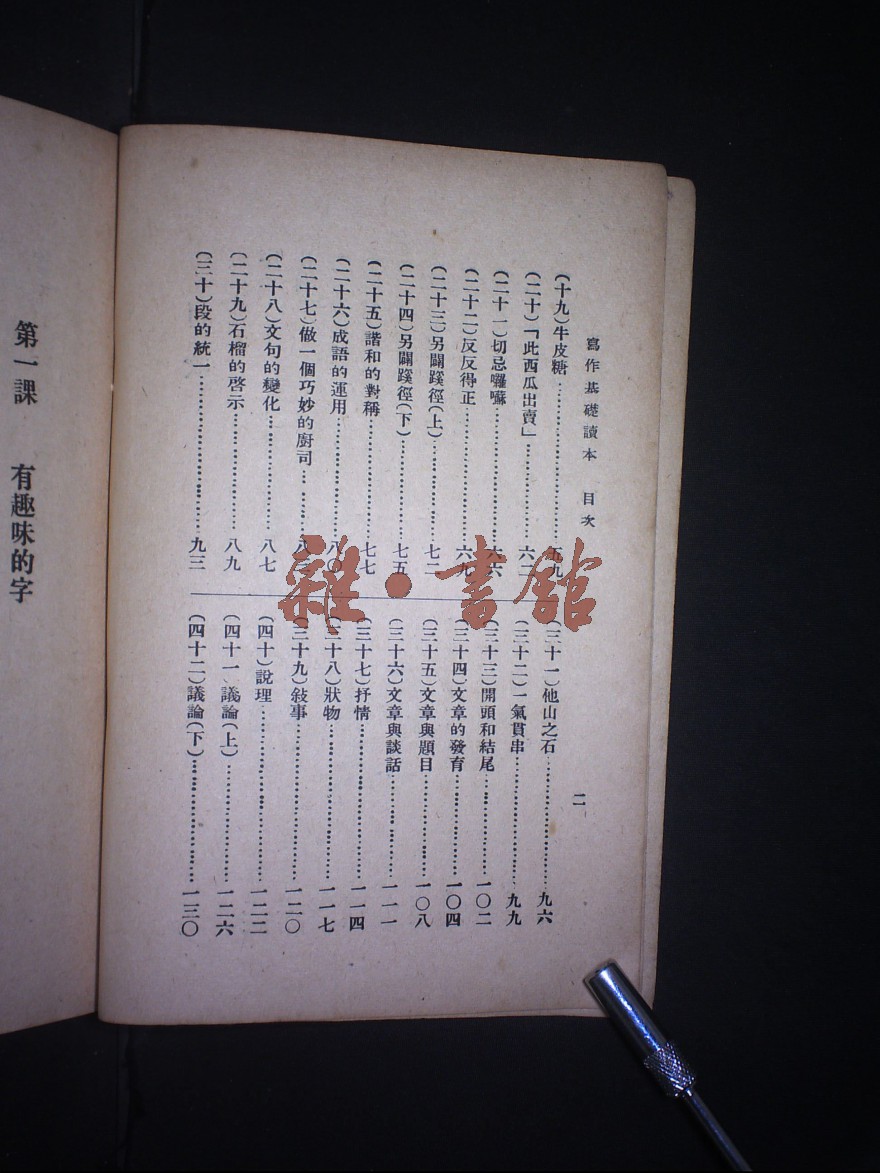 寫作基礎讀本 目次
二
(十九)牛皮糖……五九
(二十)「此西瓜出賣」……六二
(二十一)切忌囉囌……六六
(二十二)反反得正……六九
(二十三)另闢蹊徑(上)……七二
(二十四)另闢蹊徑(下)……七五
(二十五)諧和的對稱……七七
(二十六)成語的運用……八〇
(二十七)做一個巧妙的廚司……八
(二十八)文句的變化……八七
(二十九)石榴的啓示……八九
(三十)段的統一……九三
(三十一)他山之石……九六
(三十二)一氣貫串……九九
(三十三)開頭和結尾……一〇二
(三十四)文章的發育……一〇四
(三十五)文章與題目……一〇八
(三十六)文章與談話……一一一
(三十七)抒情……一一四
(三十八)狀物……一一七
(三十九)敍事……一二〇
(四十)說理……一二二
(四十一)議論(上)……一二六
(四十二)議論(下)……一三〇
第一課 有趣味的字
雜·書館